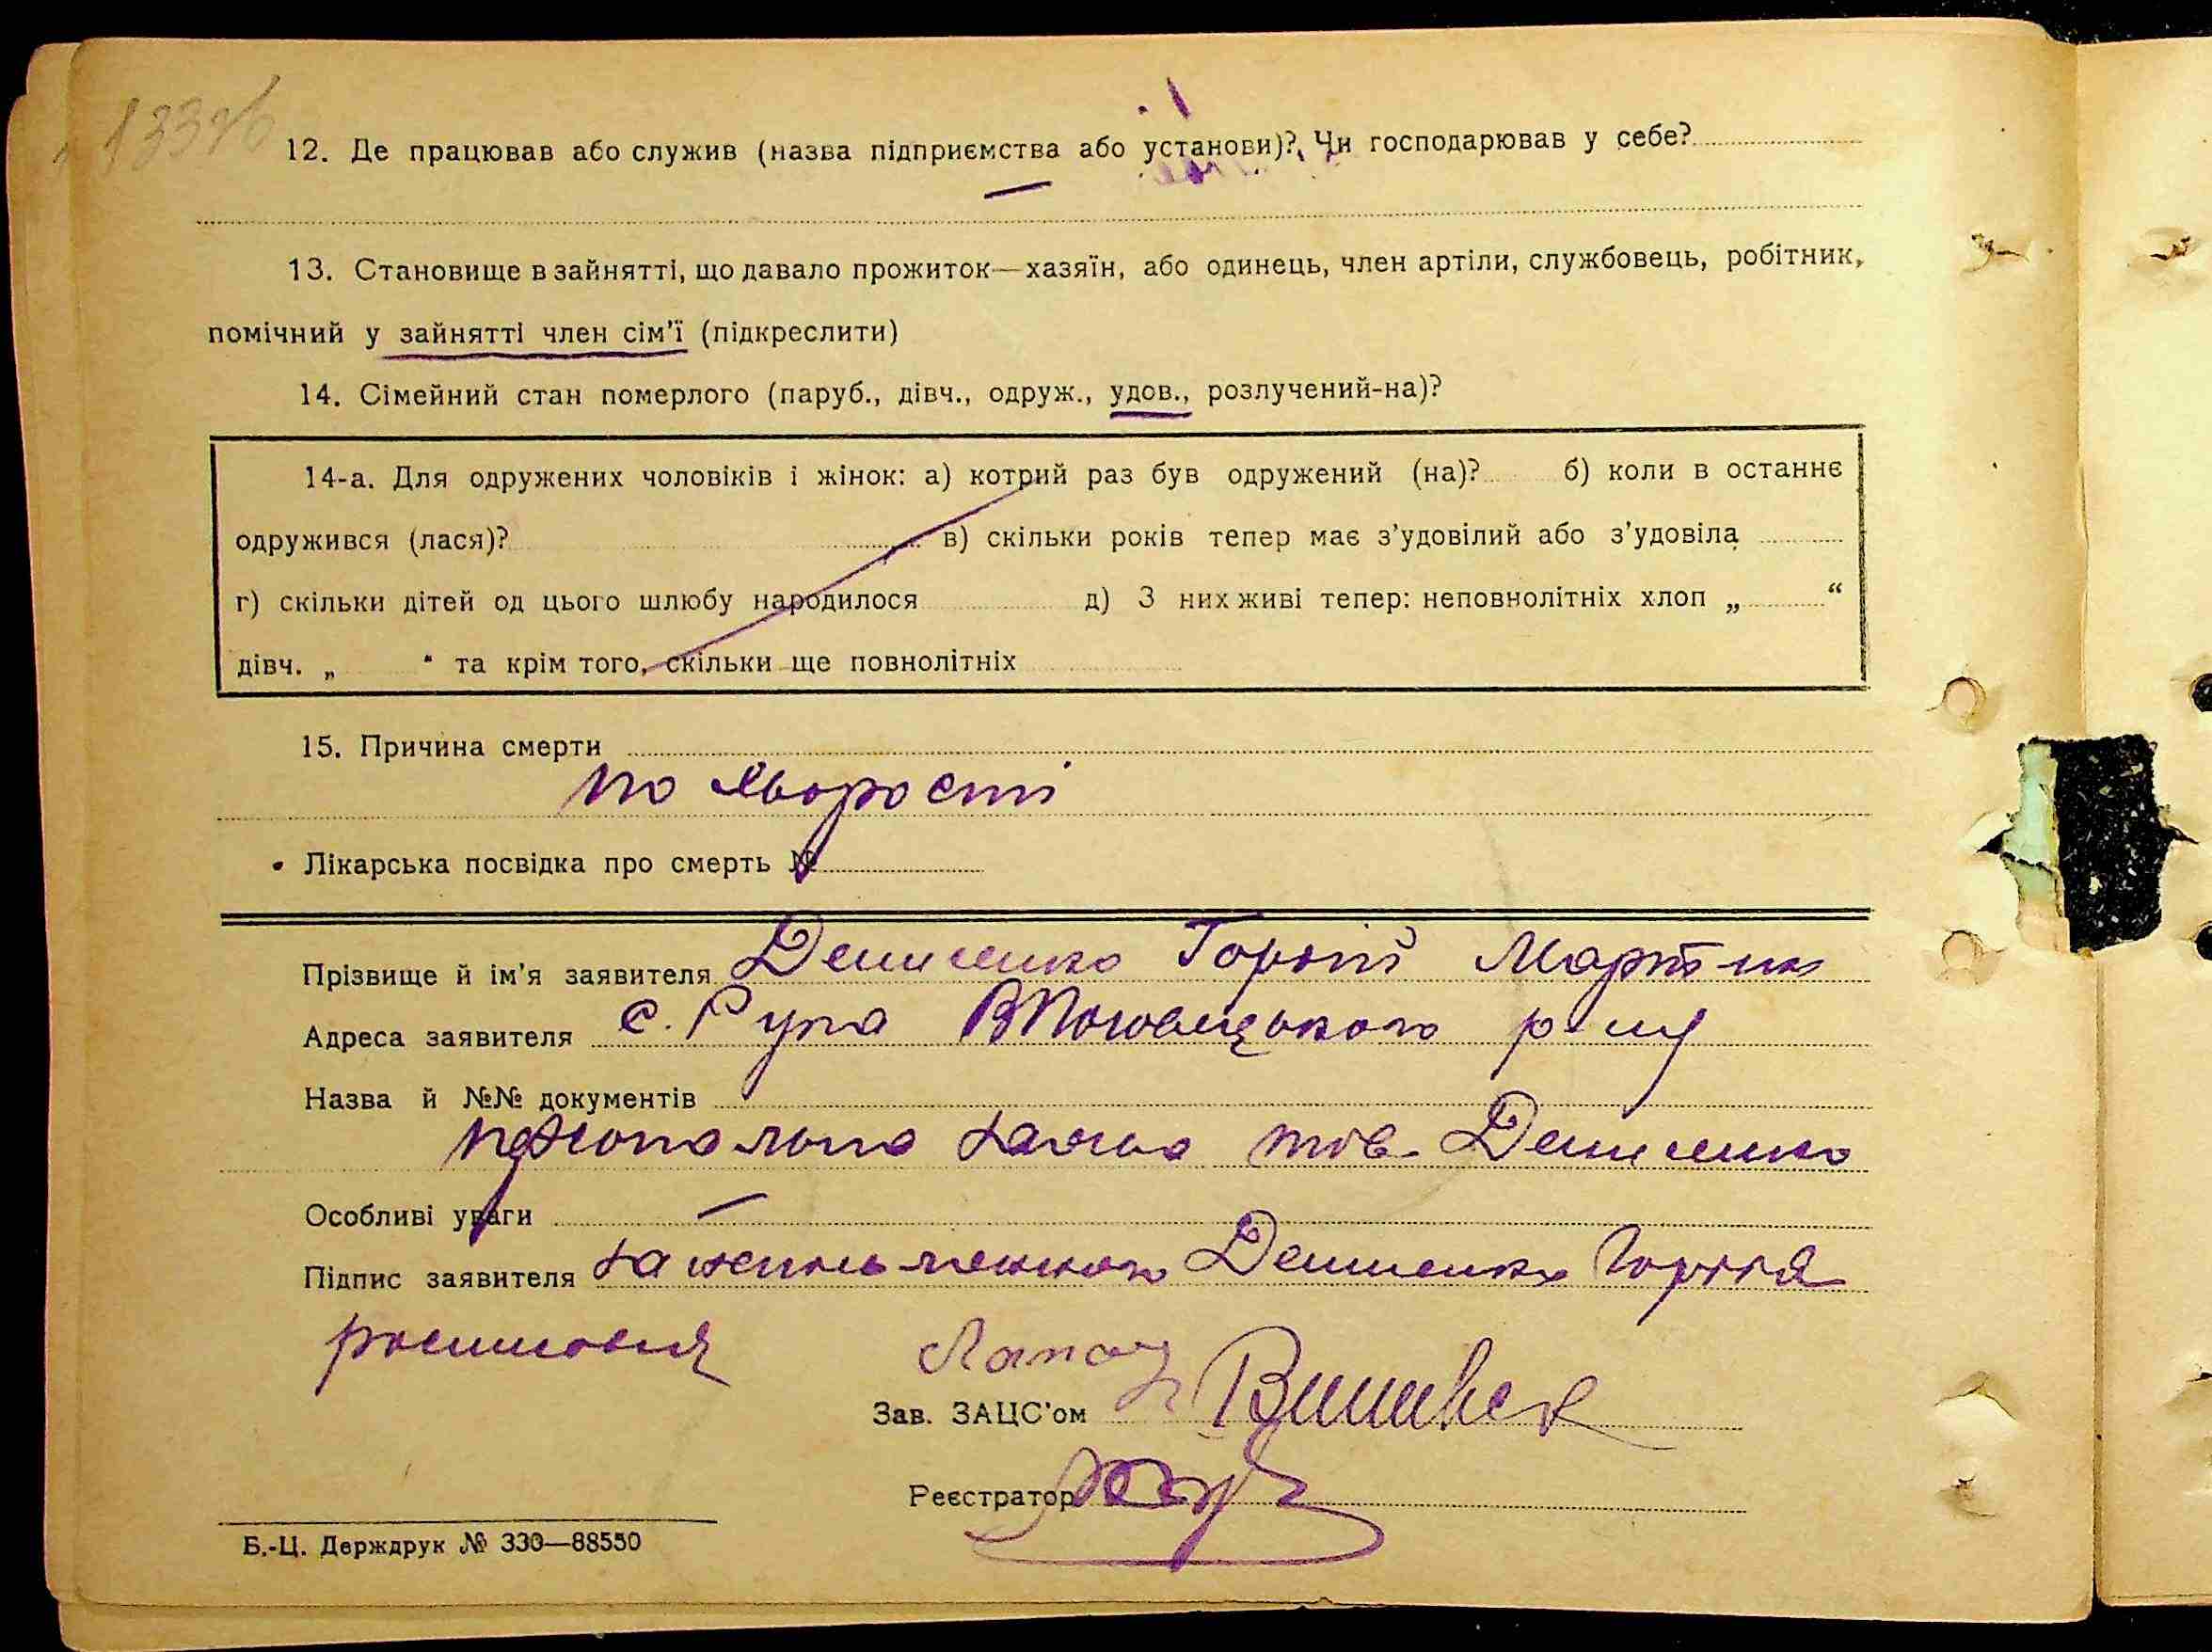 133зв
12. Де працював або служив (назва підприємства або установи)? Чи господарював у себе?
—
13. Становище в зайнятті, що давало прожиток—хазяїн, або одинець, член артіли, службовець, робітник,
помічний у зайнятті член сім'ї (підкреслити)
14. Сімейний стан померлого (паруб., дівч., одруж., удов., розлучений-на)?
14-а. Для одружених чоловіків і жінок: а) котрий раз був одружений (на)? б) коли в останнє
одружився (лася)? в) скільки років тепер має з'удовілий або з'удовіла
г) скільки дітей од цього шлюбу народилося д) З них живі тепер: неповнолітніх хлоп „ “
дівч. „ “ та крім того, скільки ще повнолітніх
15. Причина смерти
по хворості
Лікарська посвідка про смерть №
Прізвище й ім'я заявителя Денисенко Горпій Мартин
Адреса заявителя с. Руда р-ну
Назва й №№ документів
заява тов. Денисенко
Особливі уваги —
Підпис заявителя Денисенка
Зав. ЗАЦС'ом
Реєстратор
Б.-Ц. Держдрук № 330—88550